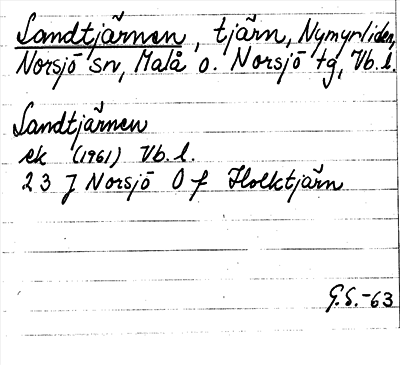 Sandtjärnen, tjärn, Nymyrliden,
Norsjö sn, Malå o. Norsjö tg, Vb. l.
Sandtjärnen
ek (1961) Vb. l.
23 J Norsjö O f Holktjärn
G.S.-63